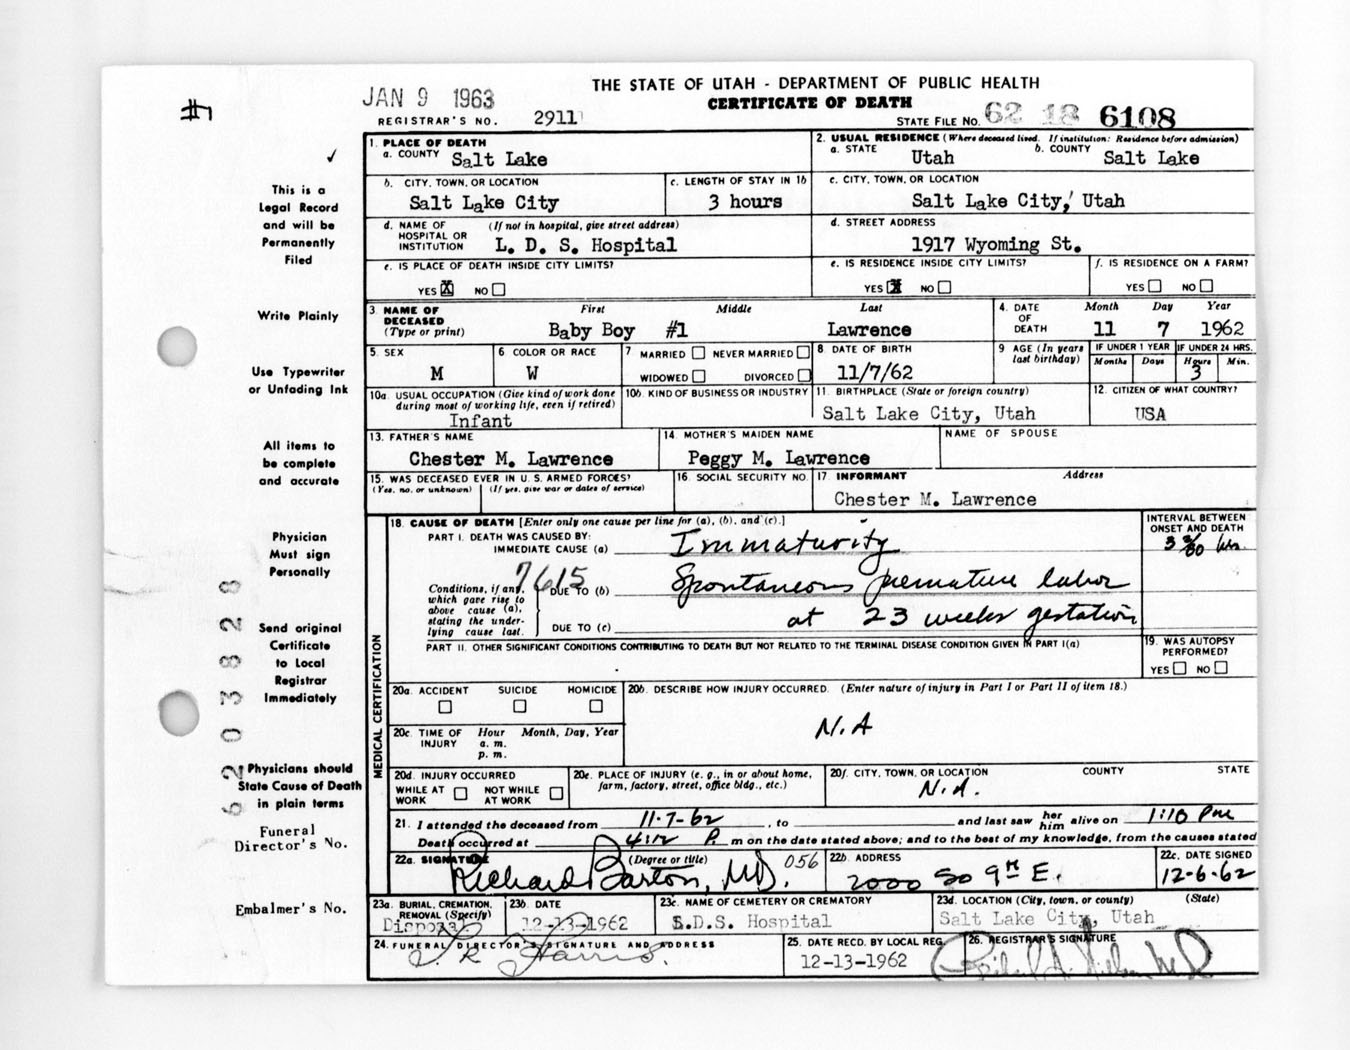 THE STATE OF UTAH - DEPARTMENT OF PUBLIC HEALTH
JAN 9 1963
CERTIFICATE OF DEATH
#1
REGISTRAR'S NO. 2911
STATE FILE NO. 62 18 6108
1. PLACE OF DEATH
a. COUNTY Salt Lake
2. USUAL RESIDENCE (Where deceased lived. If institution: Residence before admission)
a. STATE Utah b. COUNTY Salt Lake
b. CITY, TOWN, OR LOCATION
Salt Lake City
c. LENGTH OF STAY IN 1b
3 hours
c. CITY, TOWN, OR LOCATION
Salt Lake City, Utah
d. NAME OF HOSPITAL OR INSTITUTION (If not in hospital, give street address)
L. D. S. Hospital
d. STREET ADDRESS
1917 Wyoming St.
e. IS PLACE OF DEATH INSIDE CITY LIMITS?
YES X NO
e. IS RESIDENCE INSIDE CITY LIMITS?
YES X NO
f. IS RESIDENCE ON A FARM?
YES NO
3. NAME OF DECEASED (Type or print)
First Middle Last
Baby Boy #1 Lawrence
4. DATE OF DEATH
Month Day Year
11 7 1962
5. SEX
M
6 COLOR OR RACE
W
7 MARRIED NEVER MARRIED
WIDOWED DIVORCED
8 DATE OF BIRTH
11/7/62
9 AGE (In years last birthday)
IF UNDER 1 YEAR
Months Days
IF UNDER 24 HRS.
Hours Min.
3
10a. USUAL OCCUPATION (Give kind of work done during most of working life, even if retired)
Infant
10b. KIND OF BUSINESS OR INDUSTRY
11. BIRTHPLACE (State or foreign country)
Salt Lake City, Utah
12. CITIZEN OF WHAT COUNTRY?
USA
13. FATHER'S NAME
Chester M. Lawrence
14. MOTHER'S MAIDEN NAME
Peggy M. Lawrence
NAME OF SPOUSE
15. WAS DECEASED EVER IN U. S. ARMED FORCES?
(Yes, no, or unknown) (If yes, give war or dates of service)
16. SOCIAL SECURITY NO.
17. INFORMANT Address
Chester M. Lawrence
MEDICAL CERTIFICATION
18. CAUSE OF DEATH [Enter only one cause per line for (a), (b), and (c).]
PART I. DEATH WAS CAUSED BY:
IMMEDIATE CAUSE (a) Immaturity
INTERVAL BETWEEN ONSET AND DEATH
hrs.
7615
Conditions, if any, which gave rise to above cause (a), stating the underlying cause last.
DUE TO (b) Spontaneous premature labor
DUE TO (c) at 23 weeks gestation
PART II. OTHER SIGNIFICANT CONDITIONS CONTRIBUTING TO DEATH BUT NOT RELATED TO THE TERMINAL DISEASE CONDITION GIVEN IN PART I(a)
19. WAS AUTOPSY PERFORMED?
YES NO
20a. ACCIDENT SUICIDE HOMICIDE
20b. DESCRIBE HOW INJURY OCCURRED. (Enter nature of injury in Part I or Part II of item 18.)
N.A
20c. TIME OF INJURY Hour Month, Day, Year
a. m.
p. m.
20d. INJURY OCCURRED
WHILE AT WORK NOT WHILE AT WORK
20e. PLACE OF INJURY (e. g., in or about home, farm, factory, street, office bldg., etc.)
20f. CITY, TOWN, OR LOCATION COUNTY STATE
N.A.
21. I attended the deceased from 11-7-62, to and last saw her him alive on 1:10 Pm
Death occurred at 4:12 P. m on the date stated above; and to the best of my knowledge, from the causes stated
22a. SIGNATURE (Degree or title)
Richard Barton, M.D. 056
22b. ADDRESS
2000 So 9th E.
22c. DATE SIGNED
12-6-62
23a. BURIAL, CREMATION, REMOVAL (Specify)
Disposal
23b. DATE
12-13-1962
23c. NAME OF CEMETERY OR CREMATORY
L.D.S. Hospital
23d. LOCATION (City, town, or county) (State)
Salt Lake City, Utah
24. FUNERAL DIRECTOR'S SIGNATURE AND ADDRESS
Harris.
25. DATE RECD. BY LOCAL REG.
12-13-1962
26. REGISTRAR'S SIGNATURE
This is a
Legal Record
and will be
Permanently
Filed
Write Plainly
Use Typewriter
or Unfading Ink
All items to
be complete
and accurate
Physician
Must sign
Personally
Send original
Certificate
to Local
Registrar
Immediately
Physicians should
State Cause of Death
in plain terms
Funeral
Director's No.
Embalmer's No.